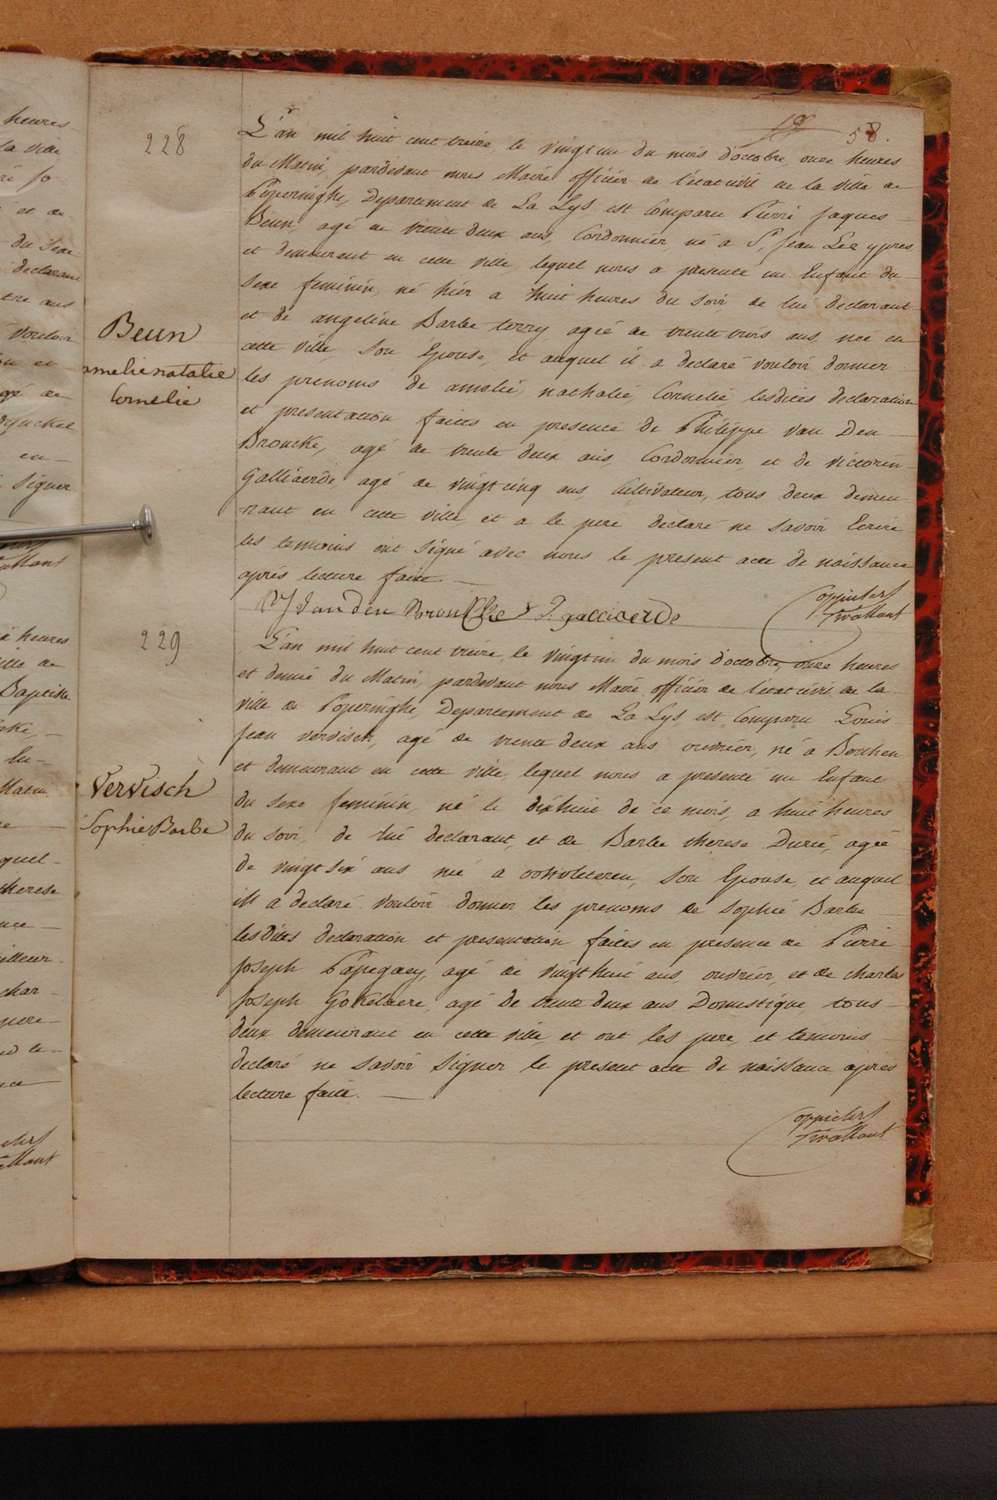 58.
228
L'an mil huit cent treize le vingt un du mois d'octobre, onze heures
du Matin, pardevant nous Maire officier de l'état civil de la ville de
Poperinghe, Departement de La Lys est Comparu Pierre Jaques
Beun, agé de trente deux ans, Cordonnier né à St Jean Lez ypres
et demeurant en cette ville, lequel nous a presenté un Enfant du
Sexe feminin, né hier a huit heures du soir de lui declarant
et de angeline Barbe terry agée de trente trois ans, née en
cette ville, Son Epouse, et auquel il a declaré vouloir donner
les prenoms de amelie, nathalie, Cornelie lesdites declaration
et presentation faites en presence de Philippe Van Den
Broucke, agé de trente deux ans, Cordonnier et de victorin
Gallieerde agé de vingt cinq ans, Cultivateur, tous deux demeu
rant en cette ville et a le pere declaré ne savoir Ecrire
les temoins ont signé avec nous le present acte de naissance
après lecture faite —
Beun
amelie natalie
Cornelie
PJ Van den Broucke V. gallieerde
229
L'an mil huit cent treize, le vingt un du mois d'octobre, onze heures
et demie du Matin, pardevant nous Maire, officier de l'état civil de la
ville de Poperinghe, Departement de La Lys est Comparu Louis
Jean Vervisch, agé de trente deux ans, ouvrier, né à
et demeurant en cette ville, lequel nous a presenté un Enfant
du Sexe feminin, né le dixhuit de ce mois, a huit heures
du soir, de lui declarant, et de Barbe therese Durie, agée
de vingt six ans née a oostvleteren, Son Epouse, et auquel
il a declaré vouloir donner les prenoms de Sophie Barbe
lesdites declaration et presentation faites en presence de Pierre
Joseph Papegaey, agé de vingt huit ans, ouvrier, et de charles
Joseph Gokelaere, agé de trente deux ans Domestique, tous
deux demeurant en cette ville, et ont les pere et temoins
declaré ne savoir Signer le present acte de naissance après
lecture faite. —
Vervisch
Sophie Barbe